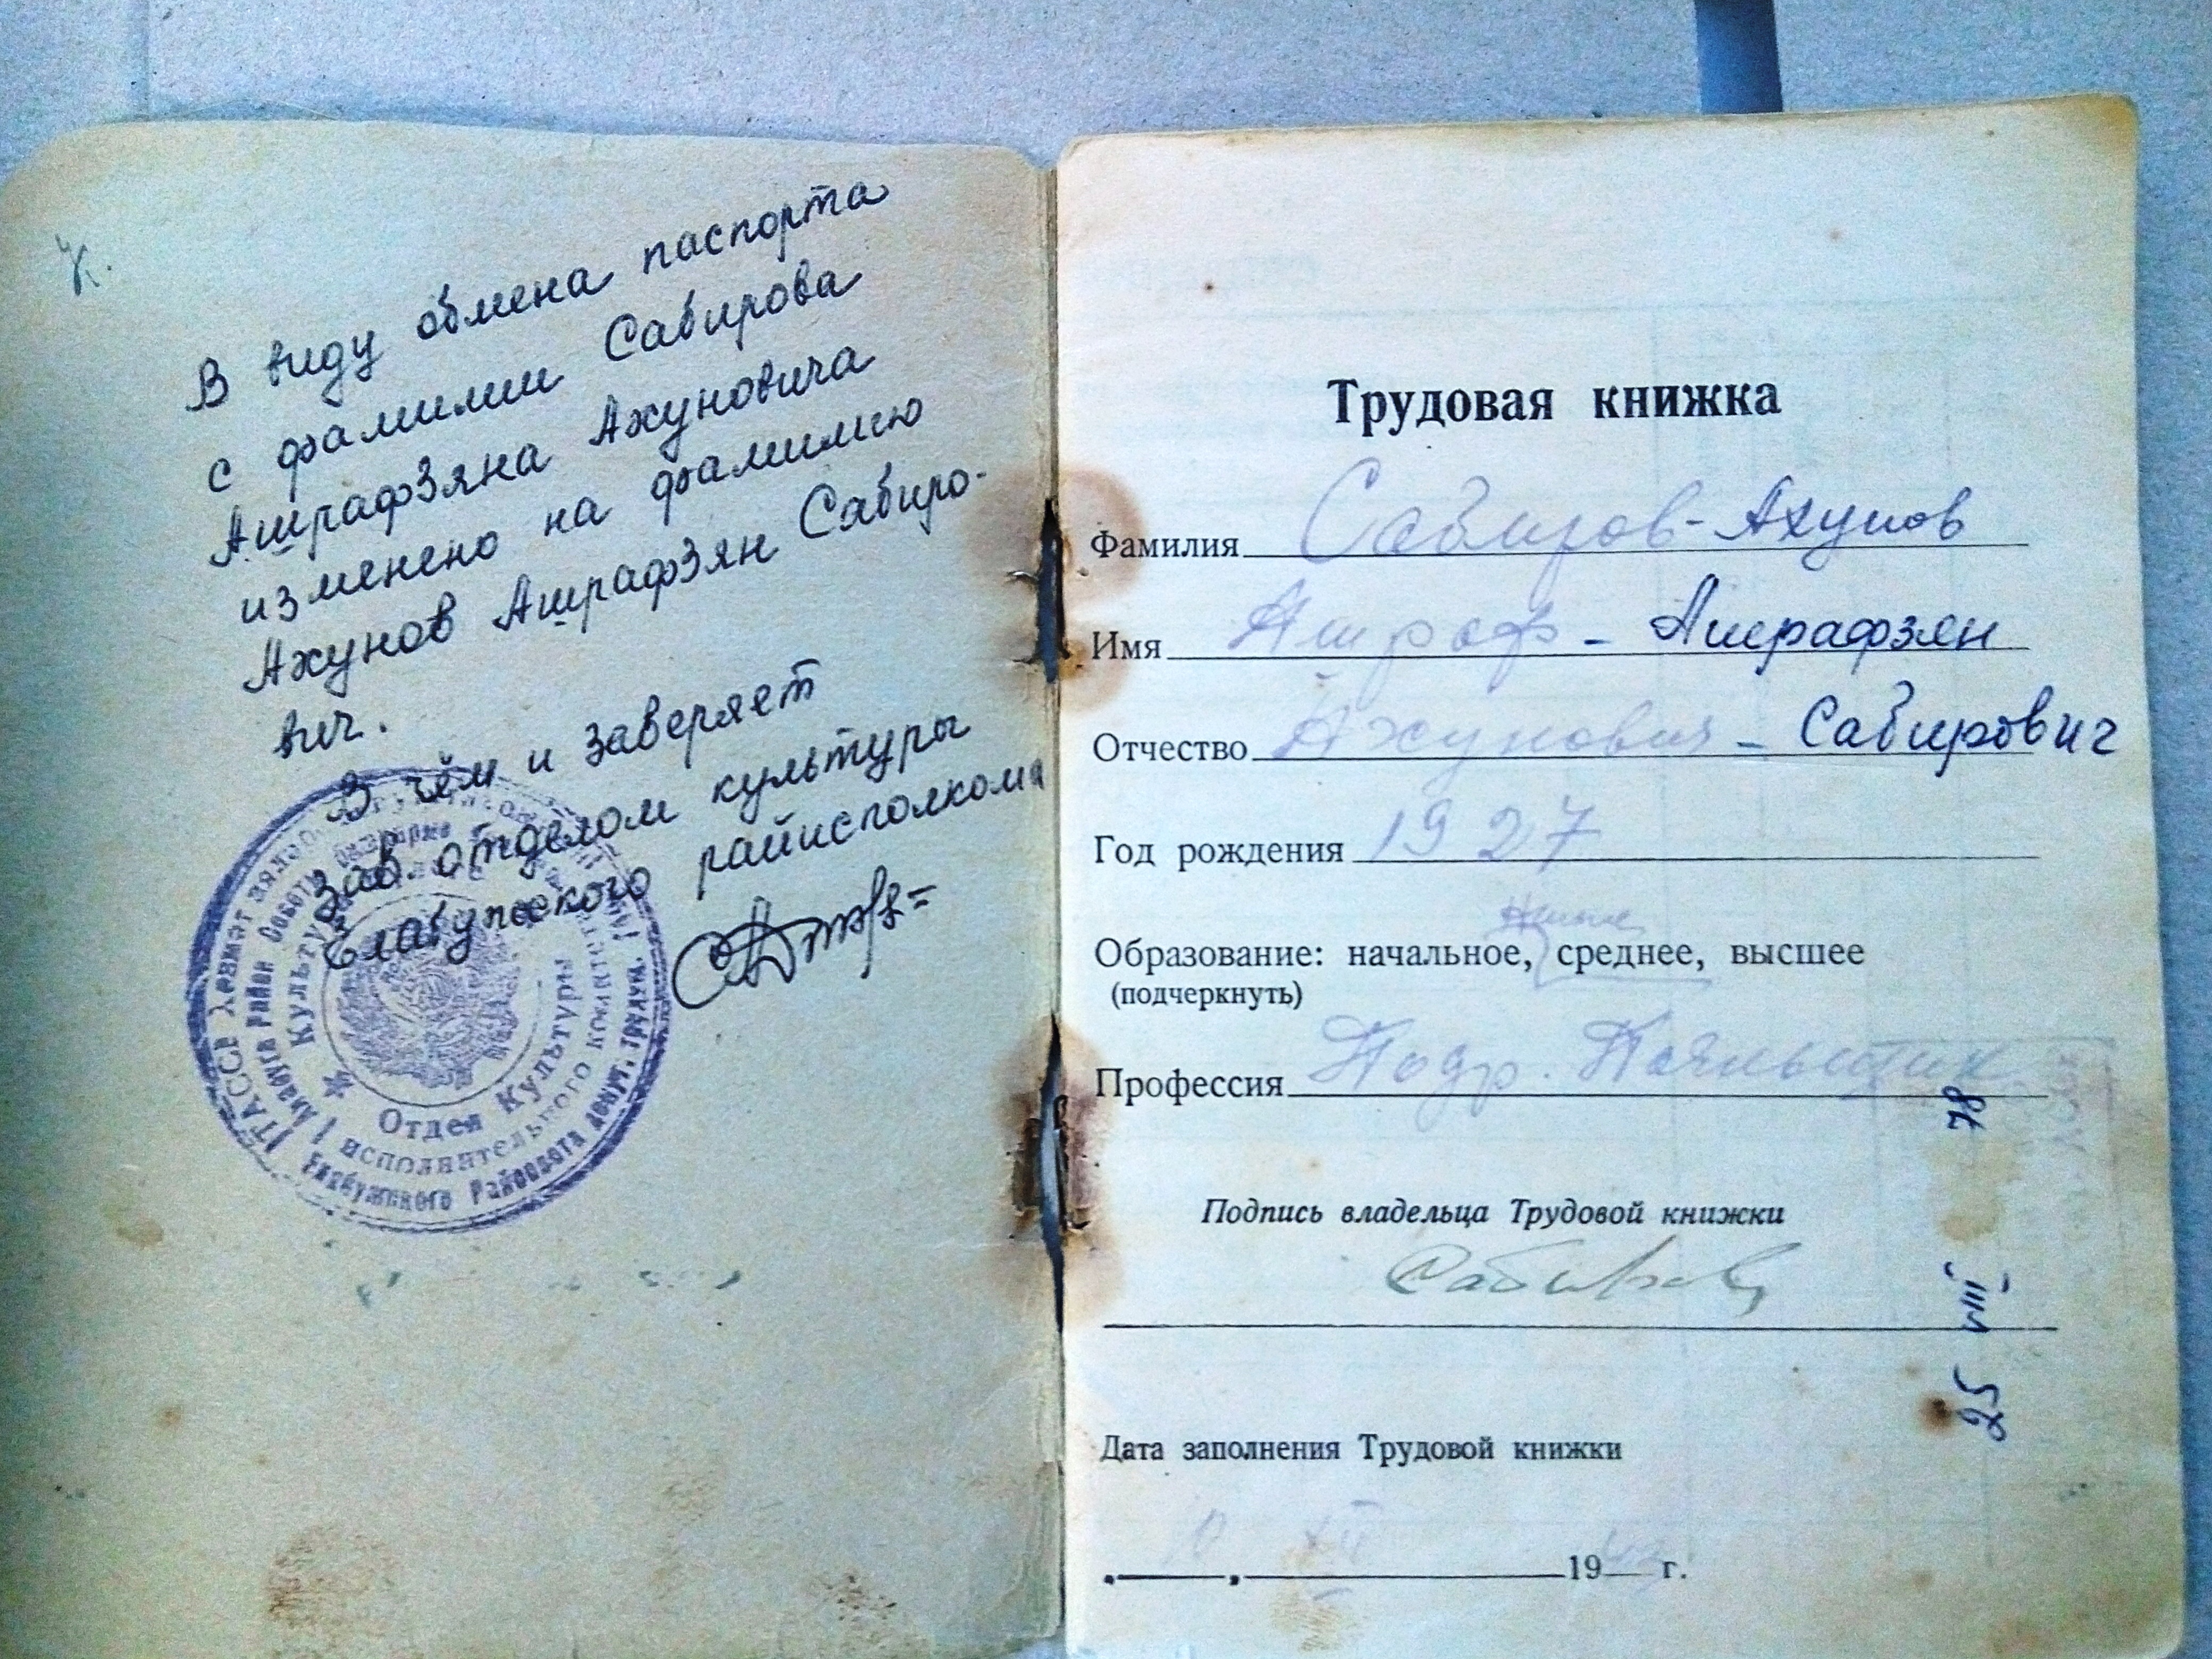 В виду обмена паспорта
с фамилии Сабирова
Ашрафзяна Ахуновича
изменено на фамилию
Ахунов Ашрафзян Сабиро-
вич.
В чём и заверяет
Зав. отделом культуры
Елабужского райисполкома
ТАССР
Отдел Культуры
исполнительного
Елабужского Райсовета депут. трудящ.
Трудовая книжка
Фамилия Сабиров-Ахунов
Имя Ашраф - Ашрафзян
Отчество Ахунович - Сабирович
Год рождения 1927
Образование: начальное, среднее, высшее
(подчеркнуть)
Профессия Подр. Паяльщик
Подпись владельца Трудовой книжки
Сабиров
25 VIII 78
Дата заполнения Трудовой книжки
19 г.